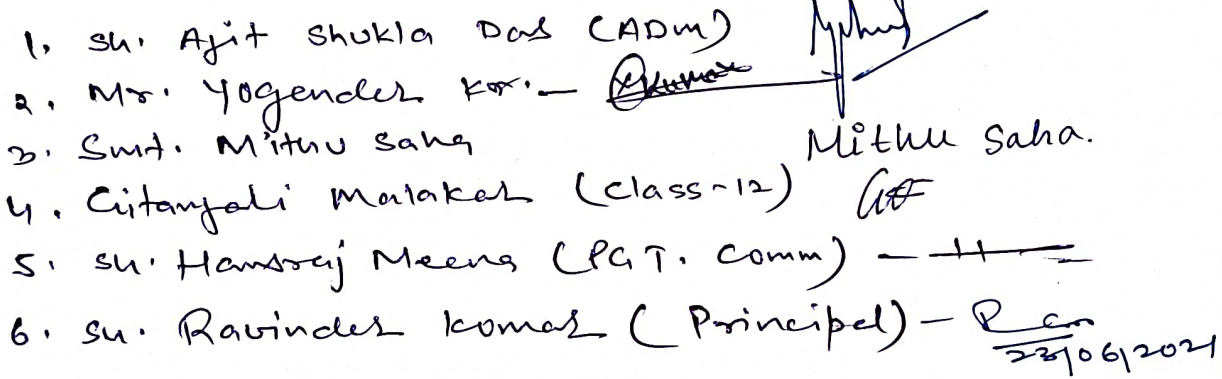 1. Sh. Ajit Shukla Das (ADM)
2. Mr. Yogender Kr. - Kumar
3. Smt. Mithu Saha Mithu Saha.
4. Gitanjali Malakar (Class-12)
5. Sh. Hansraj Meena (PGT. Comm) -
6. Sh. Ravinder Komar (Principel) -
23/06/2021